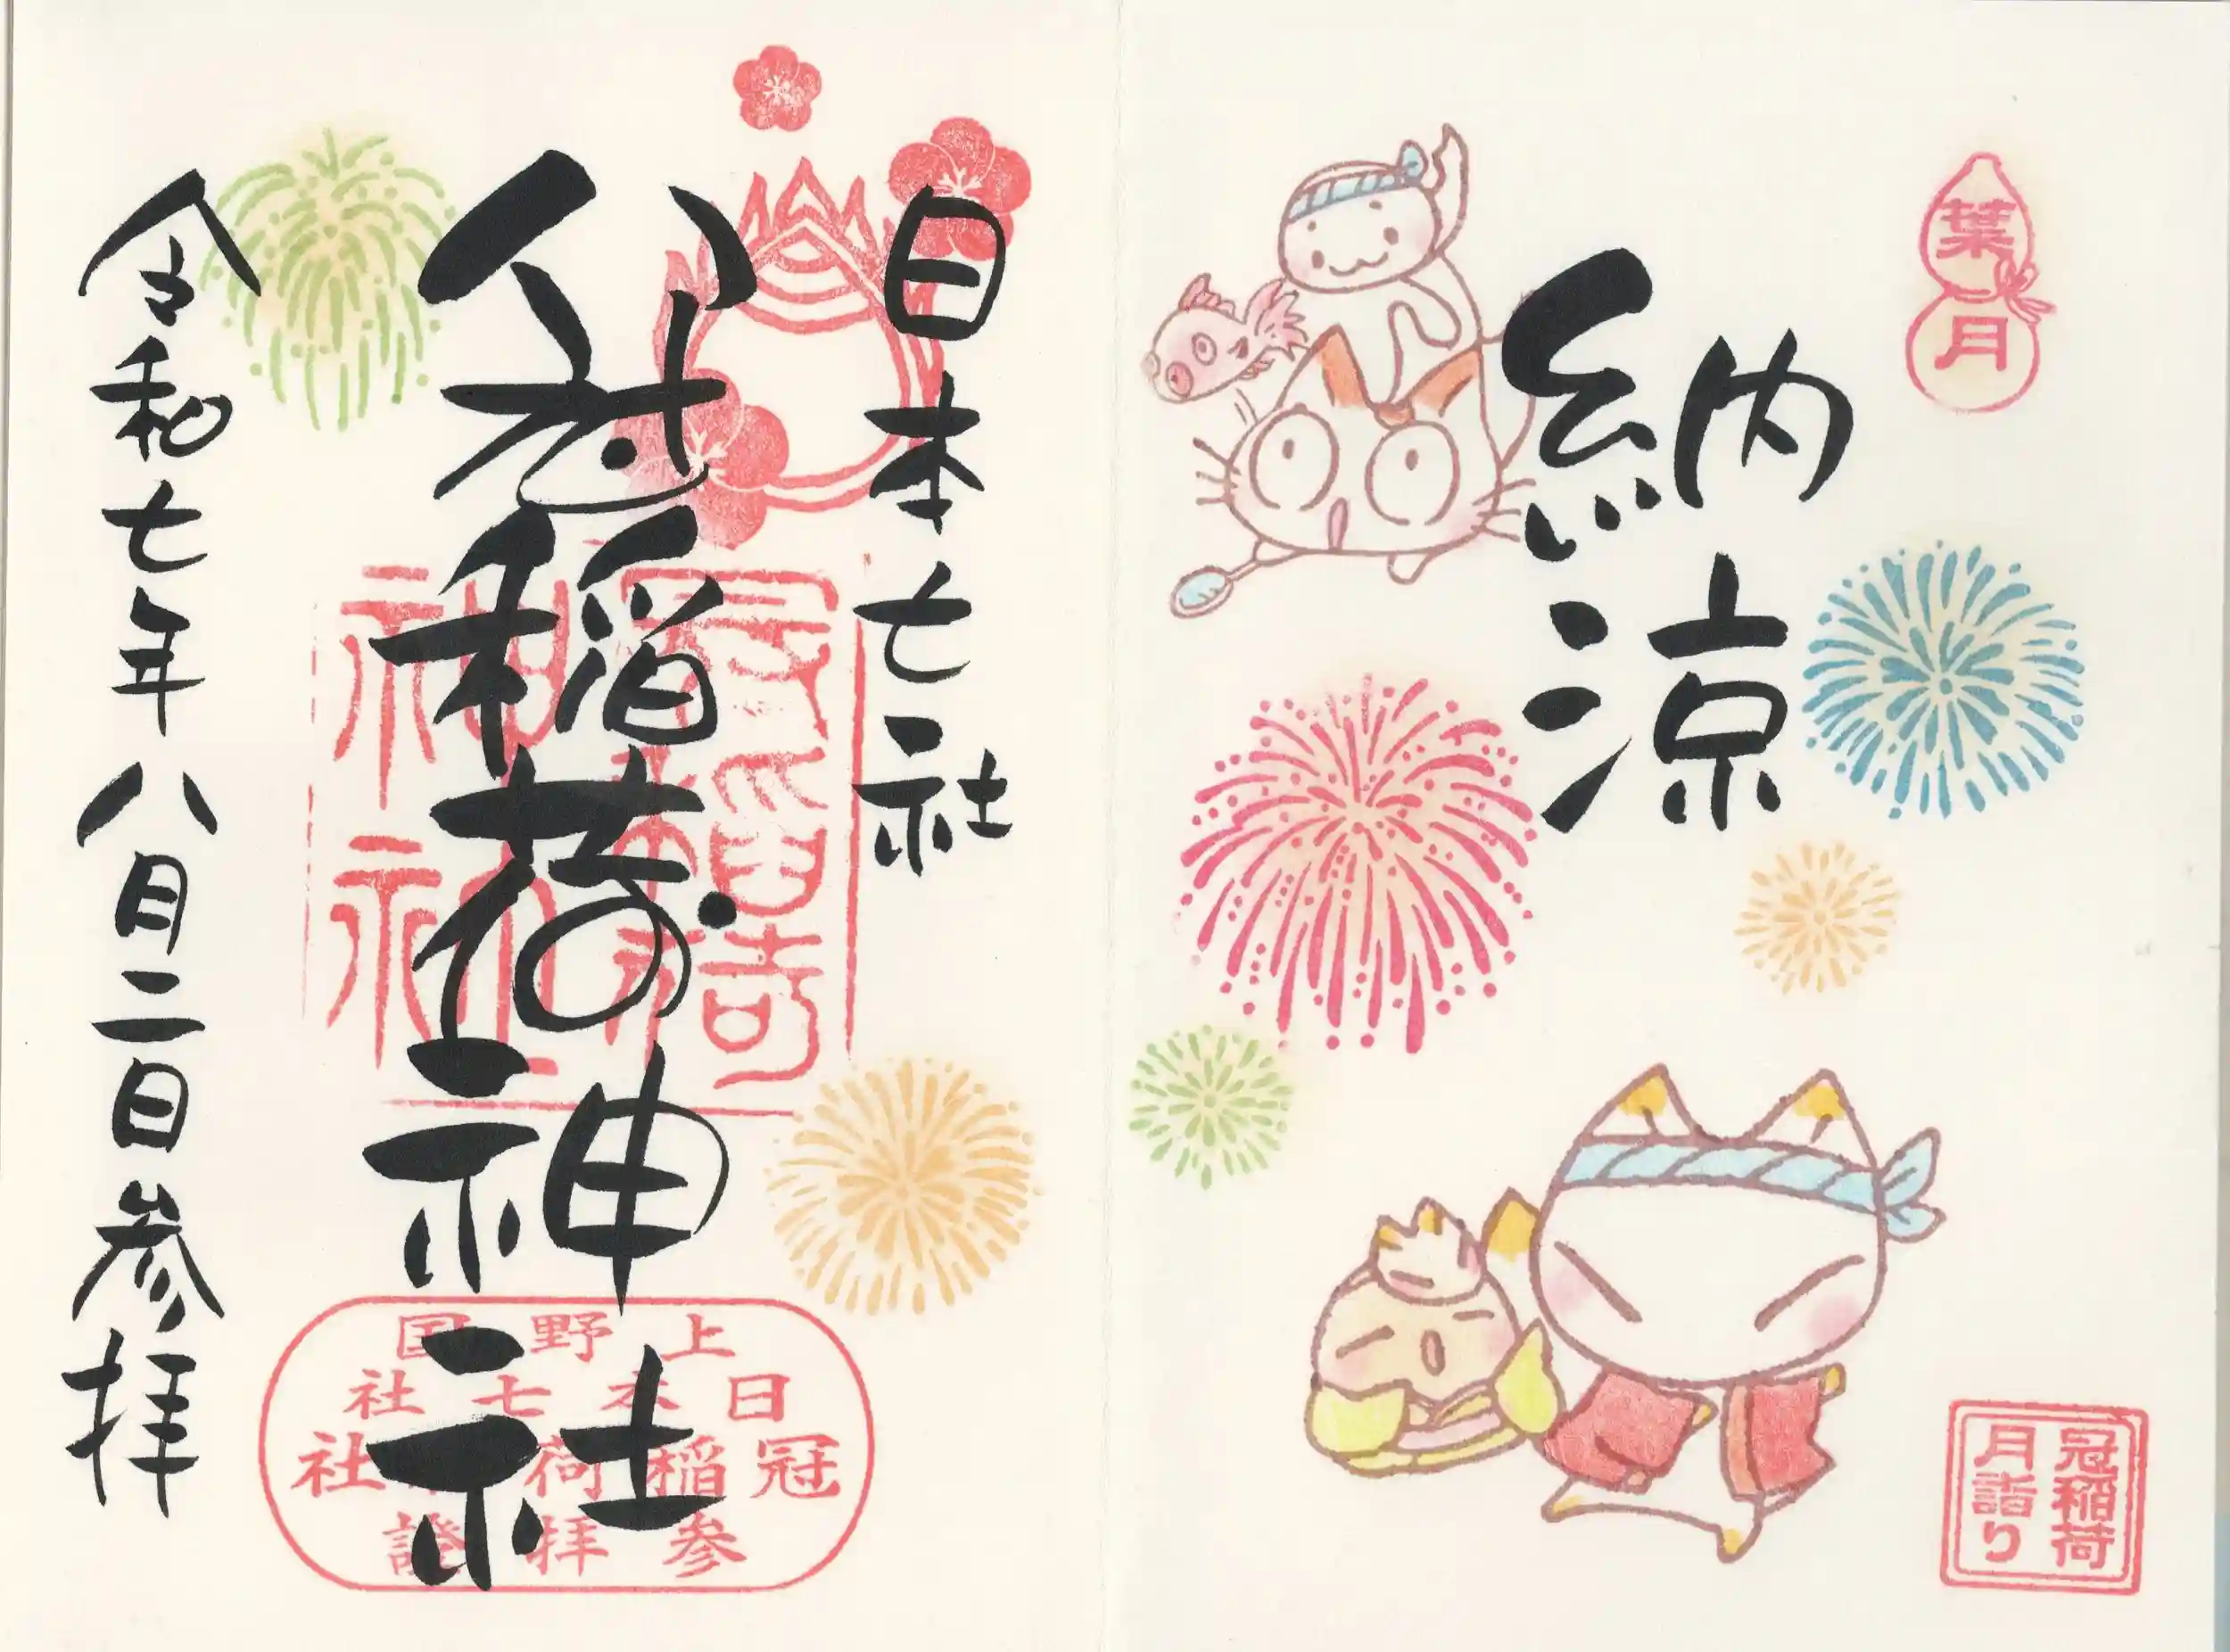 葉月
納涼
冠稲荷
月詣り
日本七社
冠稲荷神社
冠稲荷
神社
上野国
日本七社
冠稲荷神社
参拝證
令和七年八月二日参拝